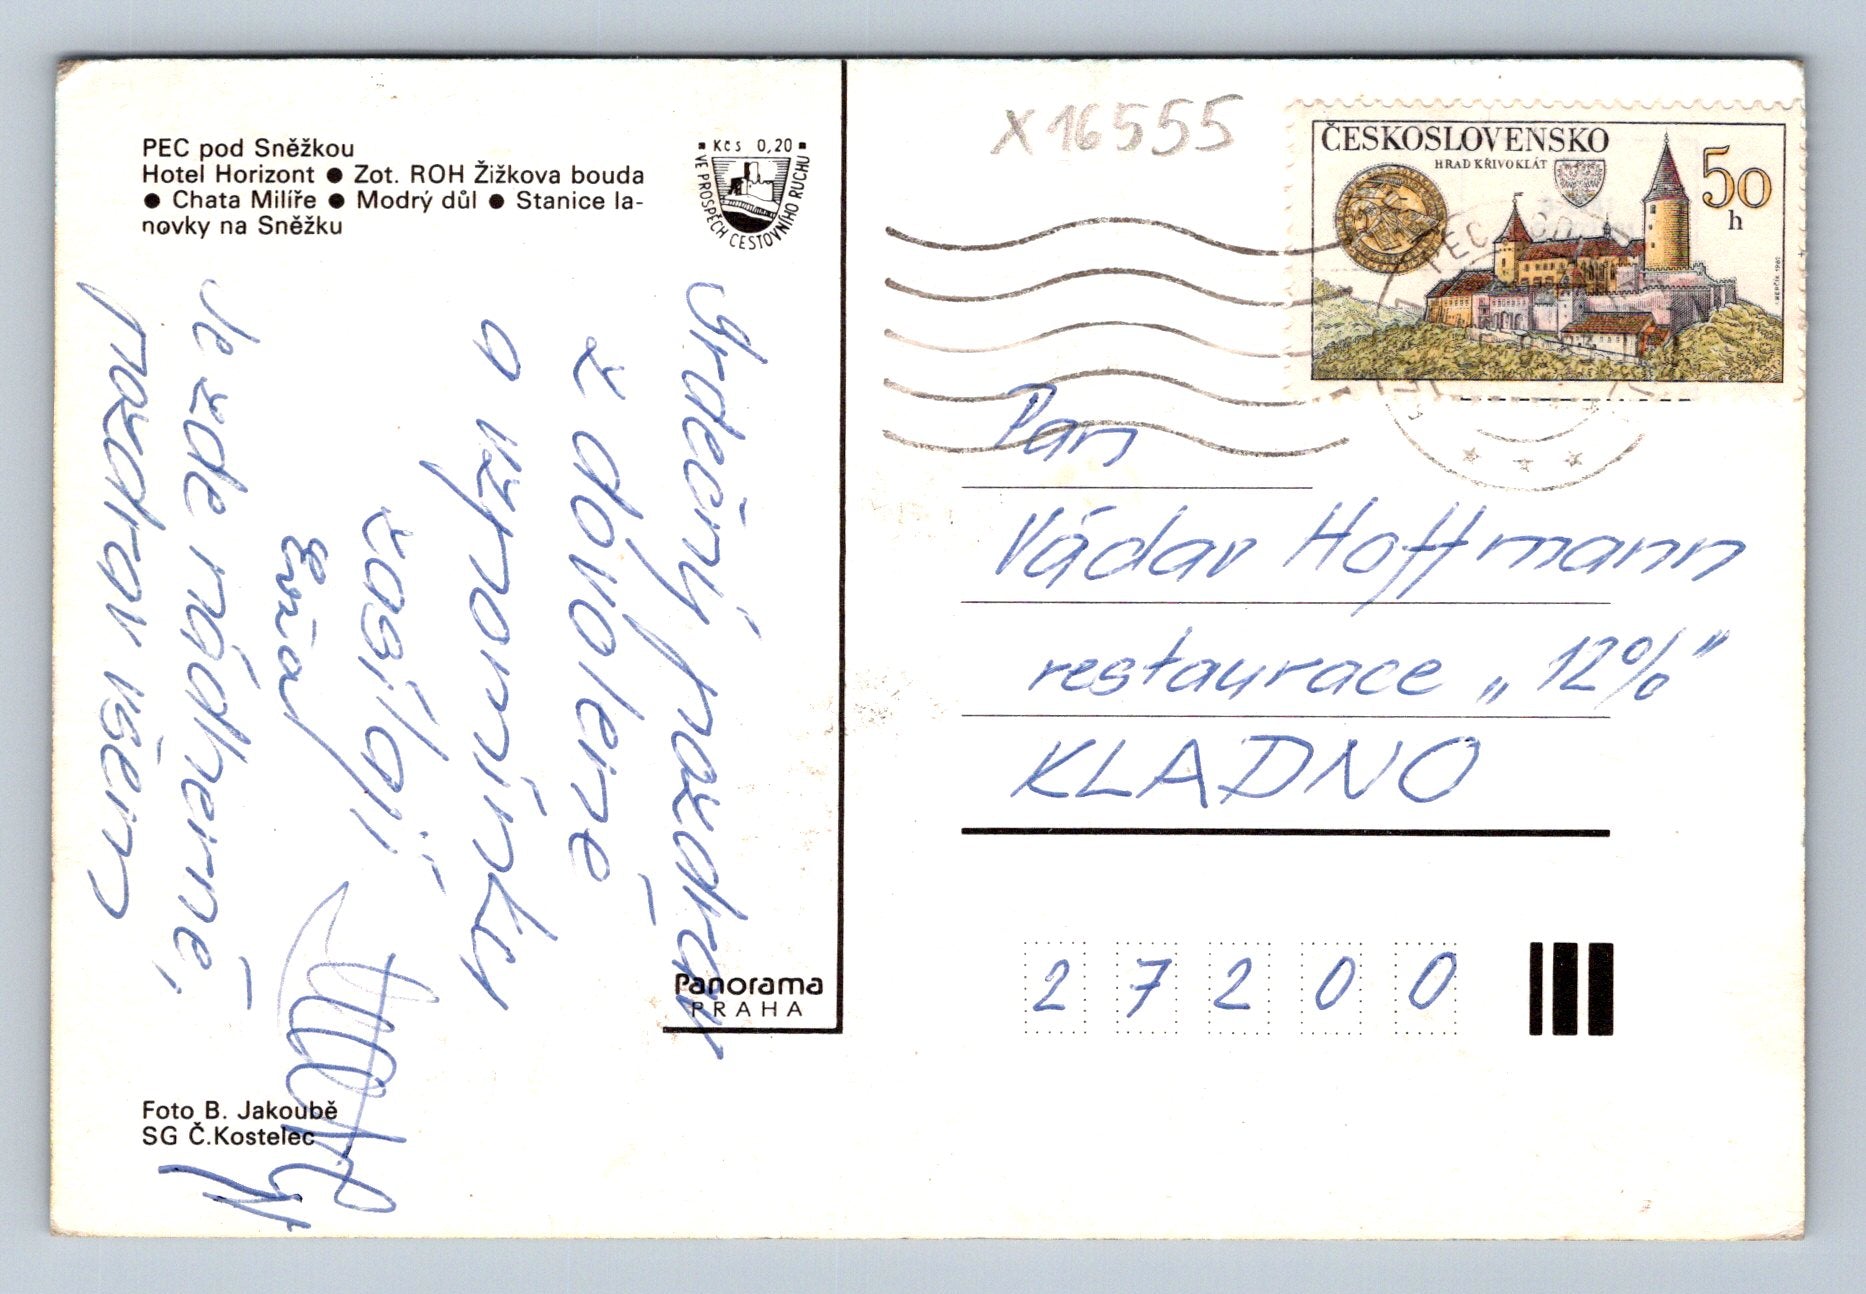 PEC pod Sněžkou
Hotel Horizont ● Zot. ROH Žižkova bouda
● Chata Milíře ● Modrý důl ● Stanice la-
novky na Sněžku
Kčs 0,20
VE PROSPĚCH CESTOVNÍHO RUCHU
Srdečný pozdrav
z dovolené
a vzpomínku
zasílají
Je zde nádherně,
pozdrav všem
Panorama
PRAHA
Foto B. Jakoubě
SG Č.Kostelec
X16555
ČESKOSLOVENSKO
HRAD KŘIVOKLÁT
50
h
PEC POD
Pan
Václav Hoffmann
restaurace „12%"
KLADNO
27200